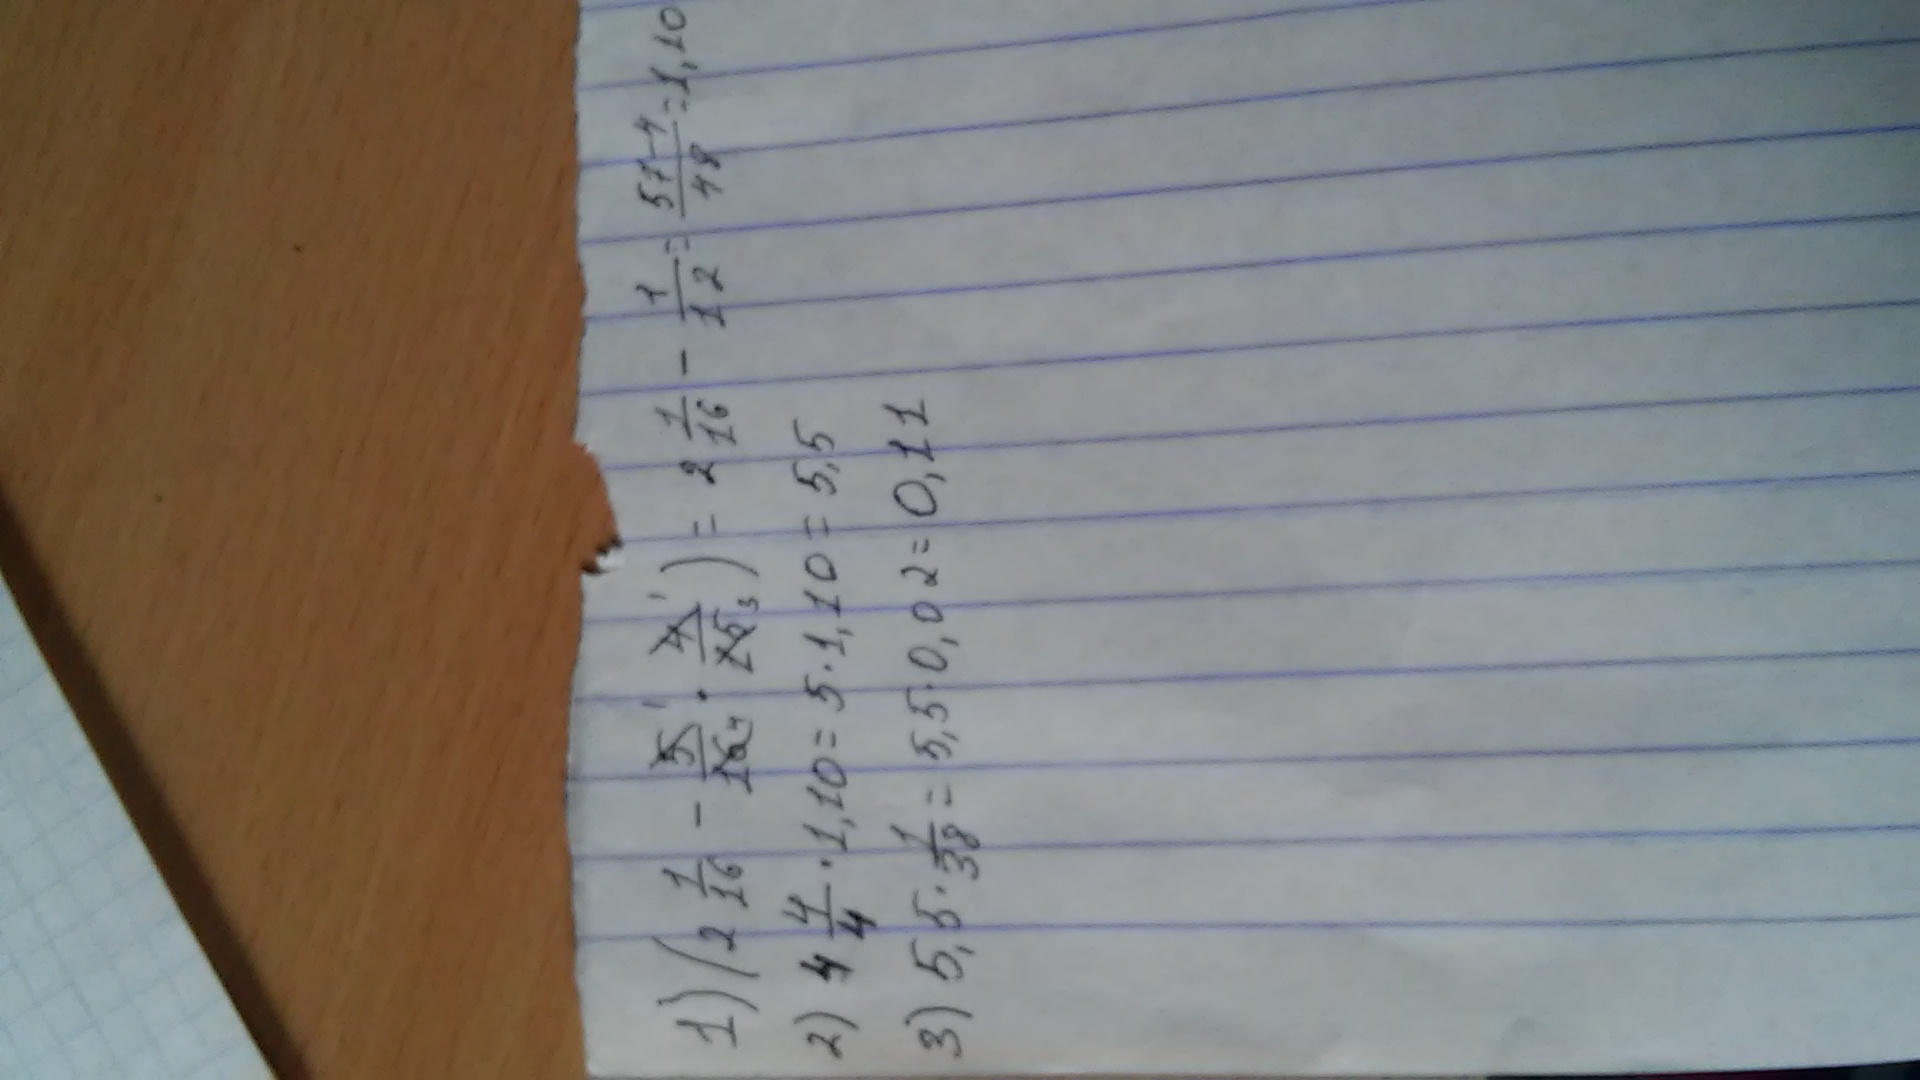 1) (2 1/16 - 5/16 · 4/15) = 2 1/16 - 1/12 = 57-4/48 = 1,10
2) 4 4/4 · 1,10 = 5 · 1,10 = 5,5
3) 5,5 · 1/38 = 5,5 · 0,02 = 0,11